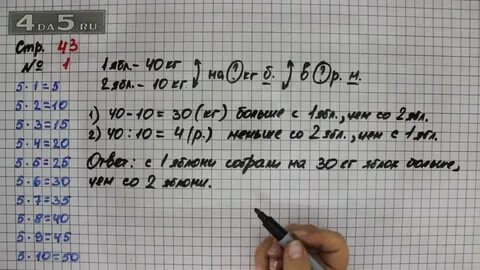 4DA5.RU
Стр. 43
№ 1
5·1=5
5·2=10
5·3=15
5·4=20
5·5=25
5·6=30
5·7=35
5·8=40
5·9=45
5·10=50
1 ябл. - 40 кг
2 ябл. - 10 кг
на ? кг б.
в ? р. м.
1) 40-10=30(кг) больше с 1 ябл., чем со 2 ябл.
2) 40:10=4(р.) меньше со 2 ябл., чем с 1 ябл.
Ответ: с 1 яблони собрали на 30 кг яблок больше,
чем со 2 яблони.